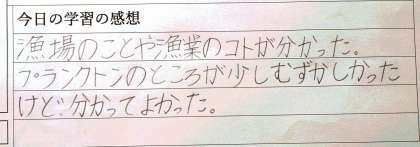 今日の学習の感想
漁場のことや漁業のコトが分かった。
プランクトンのところが少しむずかしかった
けど、分かってよかった。